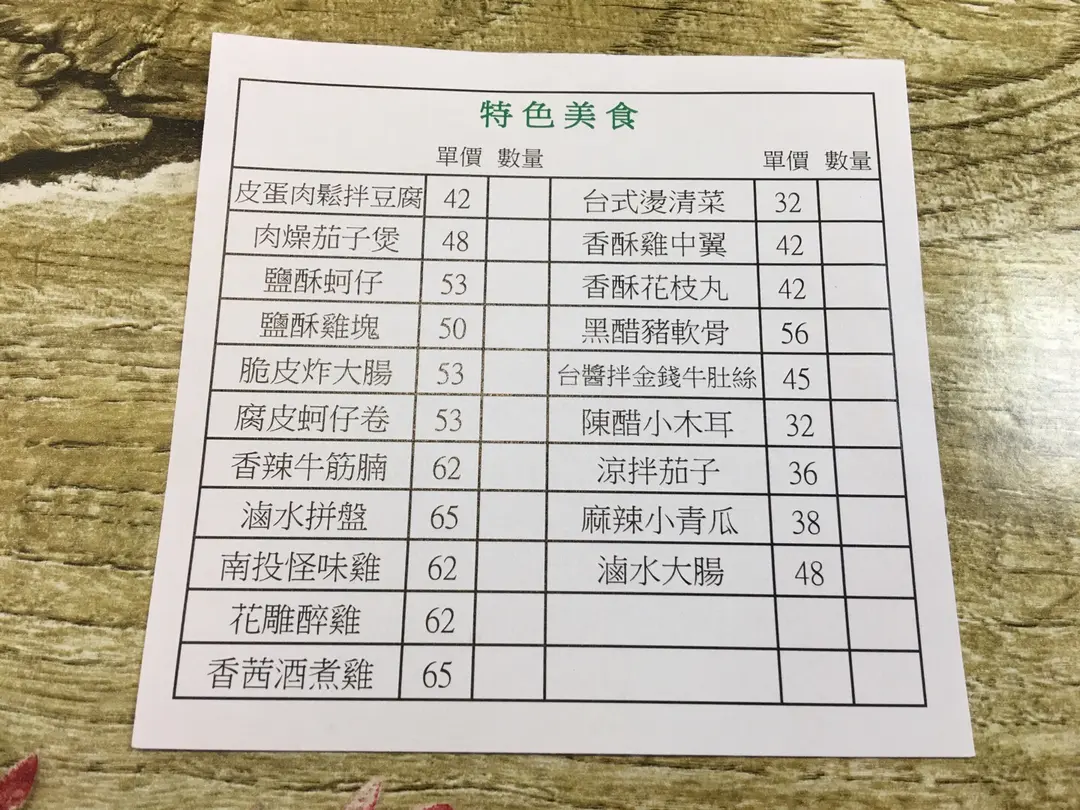 特色美食
單價 數量 單價 數量
皮蛋肉鬆拌豆腐 42 台式燙清菜 32
肉燥茄子煲 48 香酥雞中翼 42
鹽酥蚵仔 53 香酥花枝丸 42
鹽酥雞塊 50 黑醋豬軟骨 56
脆皮炸大腸 53 台醬拌金錢牛肚絲 45
腐皮蚵仔卷 53 陳醋小木耳 32
香辣牛筋腩 62 涼拌茄子 36
滷水拼盤 65 麻辣小青瓜 38
南投怪味雞 62 滷水大腸 48
花雕醉雞 62
香茜酒煮雞 65